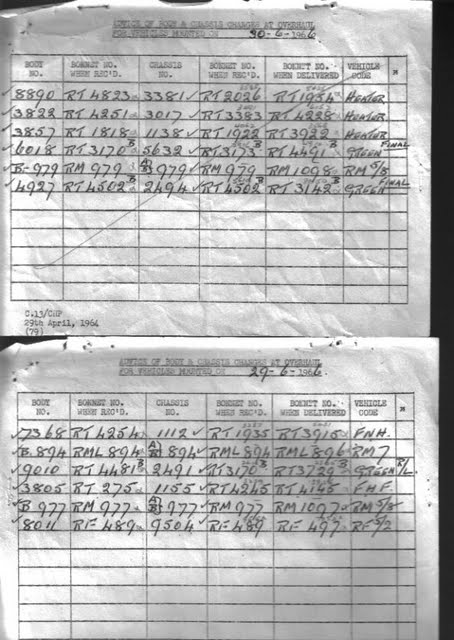 ADVICE OF BODY & CHASSIS CHANGES AT OVERHAUL
FOR VEHICLES MOUNTED ON 30-6-1966
BODY NO. BONNET NO. WHEN REC'D. CHASSIS NO. BONNET NO. WHEN REC'D. BONNET NO. WHEN DELIVERED VEHICLE CODE
8890 RT 4823 3381 RT 2026 RT 1934 HEATER
3822 RT 4251 3017 RT 3383 RT 4228 HEATER
3857 RT 1818 1138 RT 1922 RT 3922 HEATER
6018 RT 3170 B 5632 RT 3173 B RT 4491 B GREEN FINAL
B-979 RM 979 979 RM 979 RM 1098 RM 5/8
4927 RT 4502 B 2494 RT 4502 B RT 3142 B GREEN FINAL
C.13/CHP
29th April, 1964
(79)
ADVICE OF BODY & CHASSIS CHANGES AT OVERHAUL
FOR VEHICLES MOUNTED ON 29-6-1966.
BODY NO. BONNET NO. WHEN REC'D. CHASSIS NO. BONNET NO. WHEN REC'D. BONNET NO. WHEN DELIVERED VEHICLE CODE
7368 RT 4254 1112 RT 1935 RT 3915 FNH.
B. 894 RML 894 894 RML 894 RML 896 RM7
9010 RT 4481 B 2491 RT 3170 B RT 3729 B GREEN R/L.
3805 RT 275 1155 RT 4245 RT 4145 FHF
B 977 RM 977 977 RM 977 RM 1097 RM 5/8
8011 RF 489 9504 RF 489 RF 497 RF 5/2